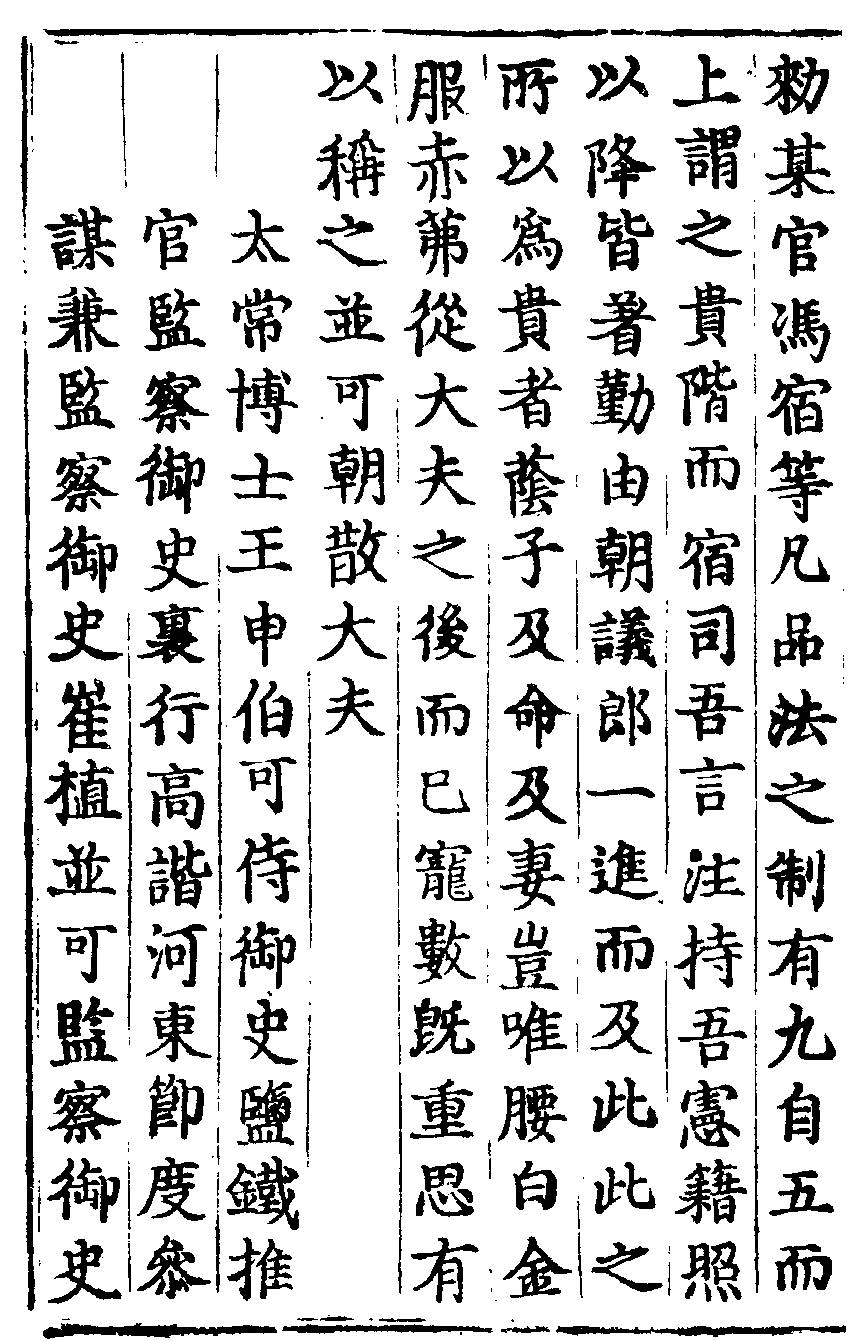 勑某官馮宿等凡品法之制有九自五而
上謂之貴階而宿司吾言注持吾憲籍照
以降皆著勤由朝議郎一進而及此此之
所以爲貴者蔭子及命及妻豈唯腰白金
服赤茀從大夫之後而已寵數旣重思有
以稱之並可朝散大夫
太常博士王申伯可侍御史鹽鐵推
官監察御史裏行高諧河東節度參
謀兼監察御史崔植並可監察御史